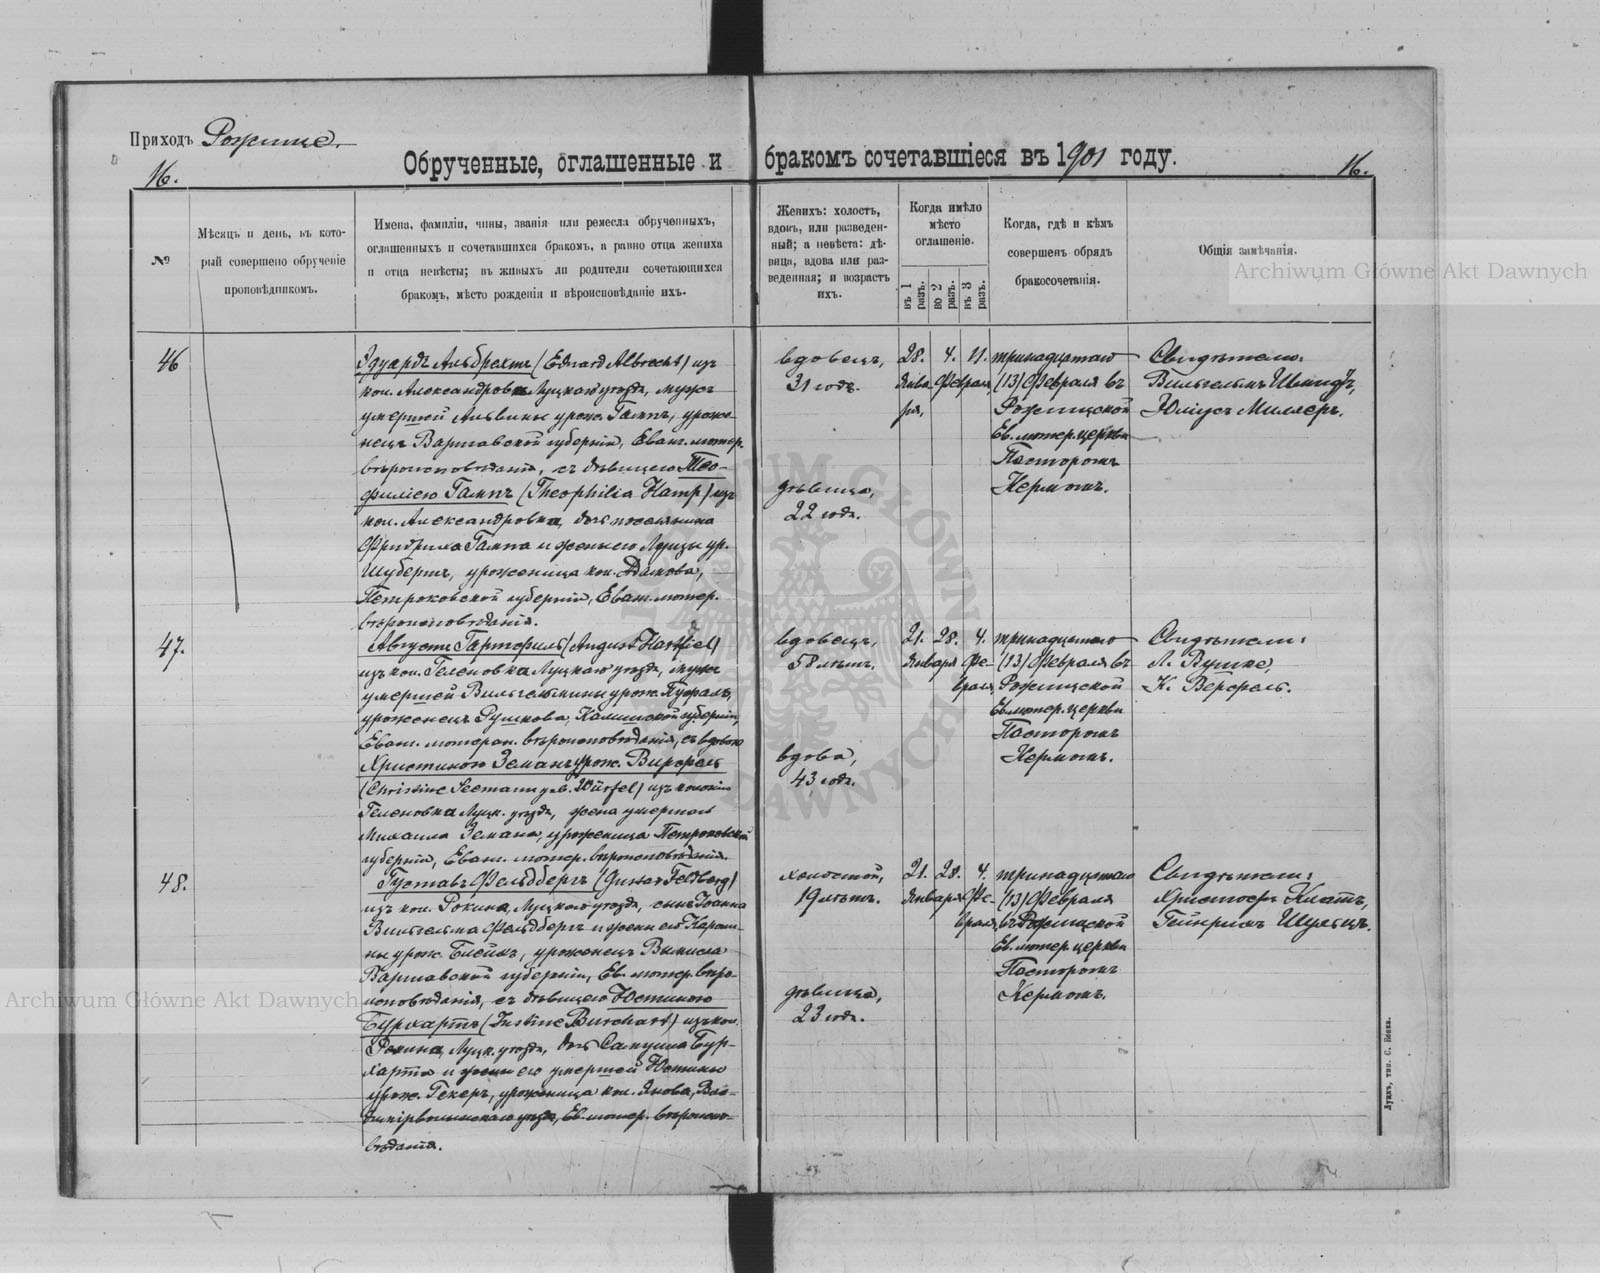 Приходъ Рожище.
16.
Обрученные, оглашенные и бракомъ сочетавшіеся въ 1901 году.
16.
№
Мѣсяцъ и день, въ кото-
рый совершено обрученіе
проповѣдникомъ.
Имена, фамиліи, чины, званія или ремесла обрученныхъ,
оглашенныхъ и сочетавшихся бракомъ, а равно отца жениха
и отца невѣсты; въ живыхъ ли родители сочетающихся
бракомъ, мѣсто рожденія и вѣроисповѣданіе ихъ.
Женихъ: холостъ,
вдовъ, или разведен-
ный; а невѣста: дѣ-
вица, вдова или раз-
веденная; и возрастъ
ихъ.
Когда имѣло
мѣсто
оглашеніе.
въ 1 разъ.
во 2 разъ.
въ 3 разъ.
Когда, гдѣ и кѣмъ
совершенъ обрядъ
бракосочетанія.
Общія замѣчанія.
Archiwum Główne Akt Dawnych
46
Эдуардъ Альбрехтъ (Eduard Albrecht) изъ
кол. Александровка Луцкаго уѣзда, мужъ
умершей Альвины урож. Гампъ, уроже-
нецъ Варшавской губерніи, Еванг. лютер.
вѣроисповѣданія, съ дѣвицею Тео-
филіею Гампъ (Theophilia Hamp) изъ
кол. Александровка, дочь поселянина
Фридриха Гампа и жены его Луизы ур.
Шубертъ, уроженица кол. Адамова,
Петроковской губерніи, Еванг. лютер.
вѣроисповѣданія.
вдовецъ,
31 годъ.
дѣвица,
22 года.
28. 4. 11.
Янва- Февраля,
ря,
тринадцатаго
(13) Февраля въ
Рожищской
Ев. лютер. церкви
Пасторомъ
Кермомъ.
Свидѣтели:
Вильгельмъ Шмидтъ,
Юліусъ Миллеръ.
47.
Августъ Гартфиль (August Hartfiel)
изъ кол. Геленовка Луцкаго уѣзда, мужъ
умершей Вильгельмины урож. Пуфаль,
уроженецъ Рушкова, Калишской губерніи,
Еванг. лютеран. вѣроисповѣданія, съ вдовою
Христиною Земанъ урож. Вирфель
(Christine Seemann geb. Würfel) изъ колоніи
Геленовка Луцк. уѣзда, жена умершаго
Михаила Земана, уроженица Петроковской
губерніи, Еванг. лютер. вѣроисповѣданія.
вдовецъ,
58 лѣтъ.
вдова,
43 года.
21. 28. 4.
Января Фе-
враля,
тринадцатаго
(13) Февраля въ
Рожищской
Ев. лютер. церкви
Пасторомъ
Кермомъ.
Свидѣтели:
Л. Вушке,
К. Верфель.
48.
Густавъ Фельдбергъ (Gustav Feldberg)
изъ кол. Рокина, Луцкаго уѣзда, сынъ Іоанна
Вильгельма Фельдбергъ и жены его Кароли-
ны урож. Блейхъ, уроженецъ
Варшавской губерніи, Ев. лютер. вѣро-
исповѣданія, съ дѣвицею Юстиною
Бурхартъ (Justine Burchart) изъ кол.
Рокина, Луцк. уѣзда, дочь Самуила Бур-
харта и жены его умершей Юстины
урож. Гекеръ, уроженица кол. Янова, Вла-
димірволынскаго уѣзда, Ев. лютер. вѣроиспо-
вѣданія.
холостой,
19 лѣтъ.
дѣвица,
23 года.
21. 28. 4.
Января Фе-
враля,
тринадцатаго
(13) Февраля
въ Рожищской
Ев. лютер. церкви
Пасторомъ
Кермомъ.
Свидѣтели:
Христофъ Клаттъ,
Гейнрихъ Шульцъ.
Archiwum Główne Akt Dawnych
Луцкъ, тип. С. Бонка.